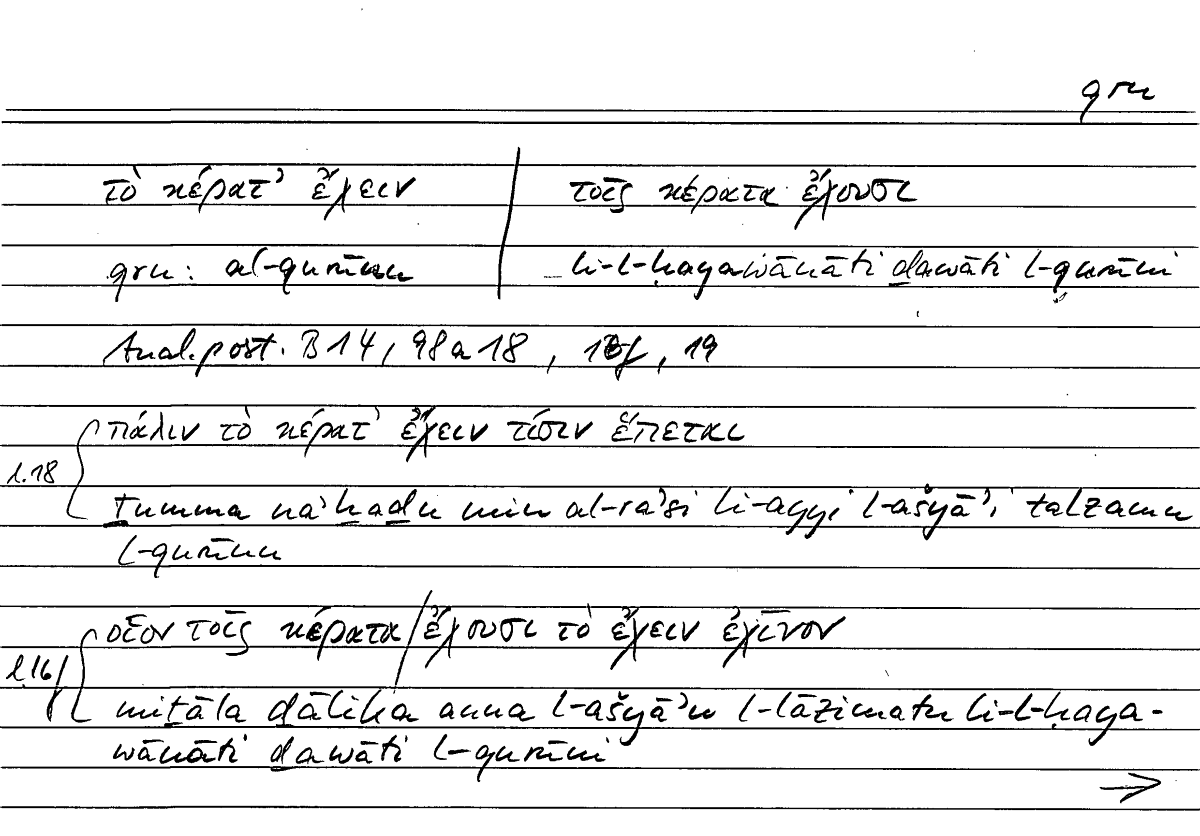 qrn
τὸ κέρατ' ἔχειν | τοῖς κέρατα ἔχουσι
qrn: al-qurūnu | li-l-ḥayawānāti ḏawāti l-qurūni
Anal. post. B 14, 98a18, 16f, 19
πάλιν τὸ κέρατ' ἔχειν τίσιν ἕπεται
l.18
ṯumma na'ḫuḏu min al-ra'si li-ayyi l-ašyā'i talzamu
l-qurūnu
οἷον τοῖς κέρατα/ἔχουσι τὸ ἔχειν ἐχῖνον
l.16/
miṯāla ḏālika anna l-ašyā'u l-lāzimatu li-l-ḥaya-
wānāti ḏawāti l-qurūni
→